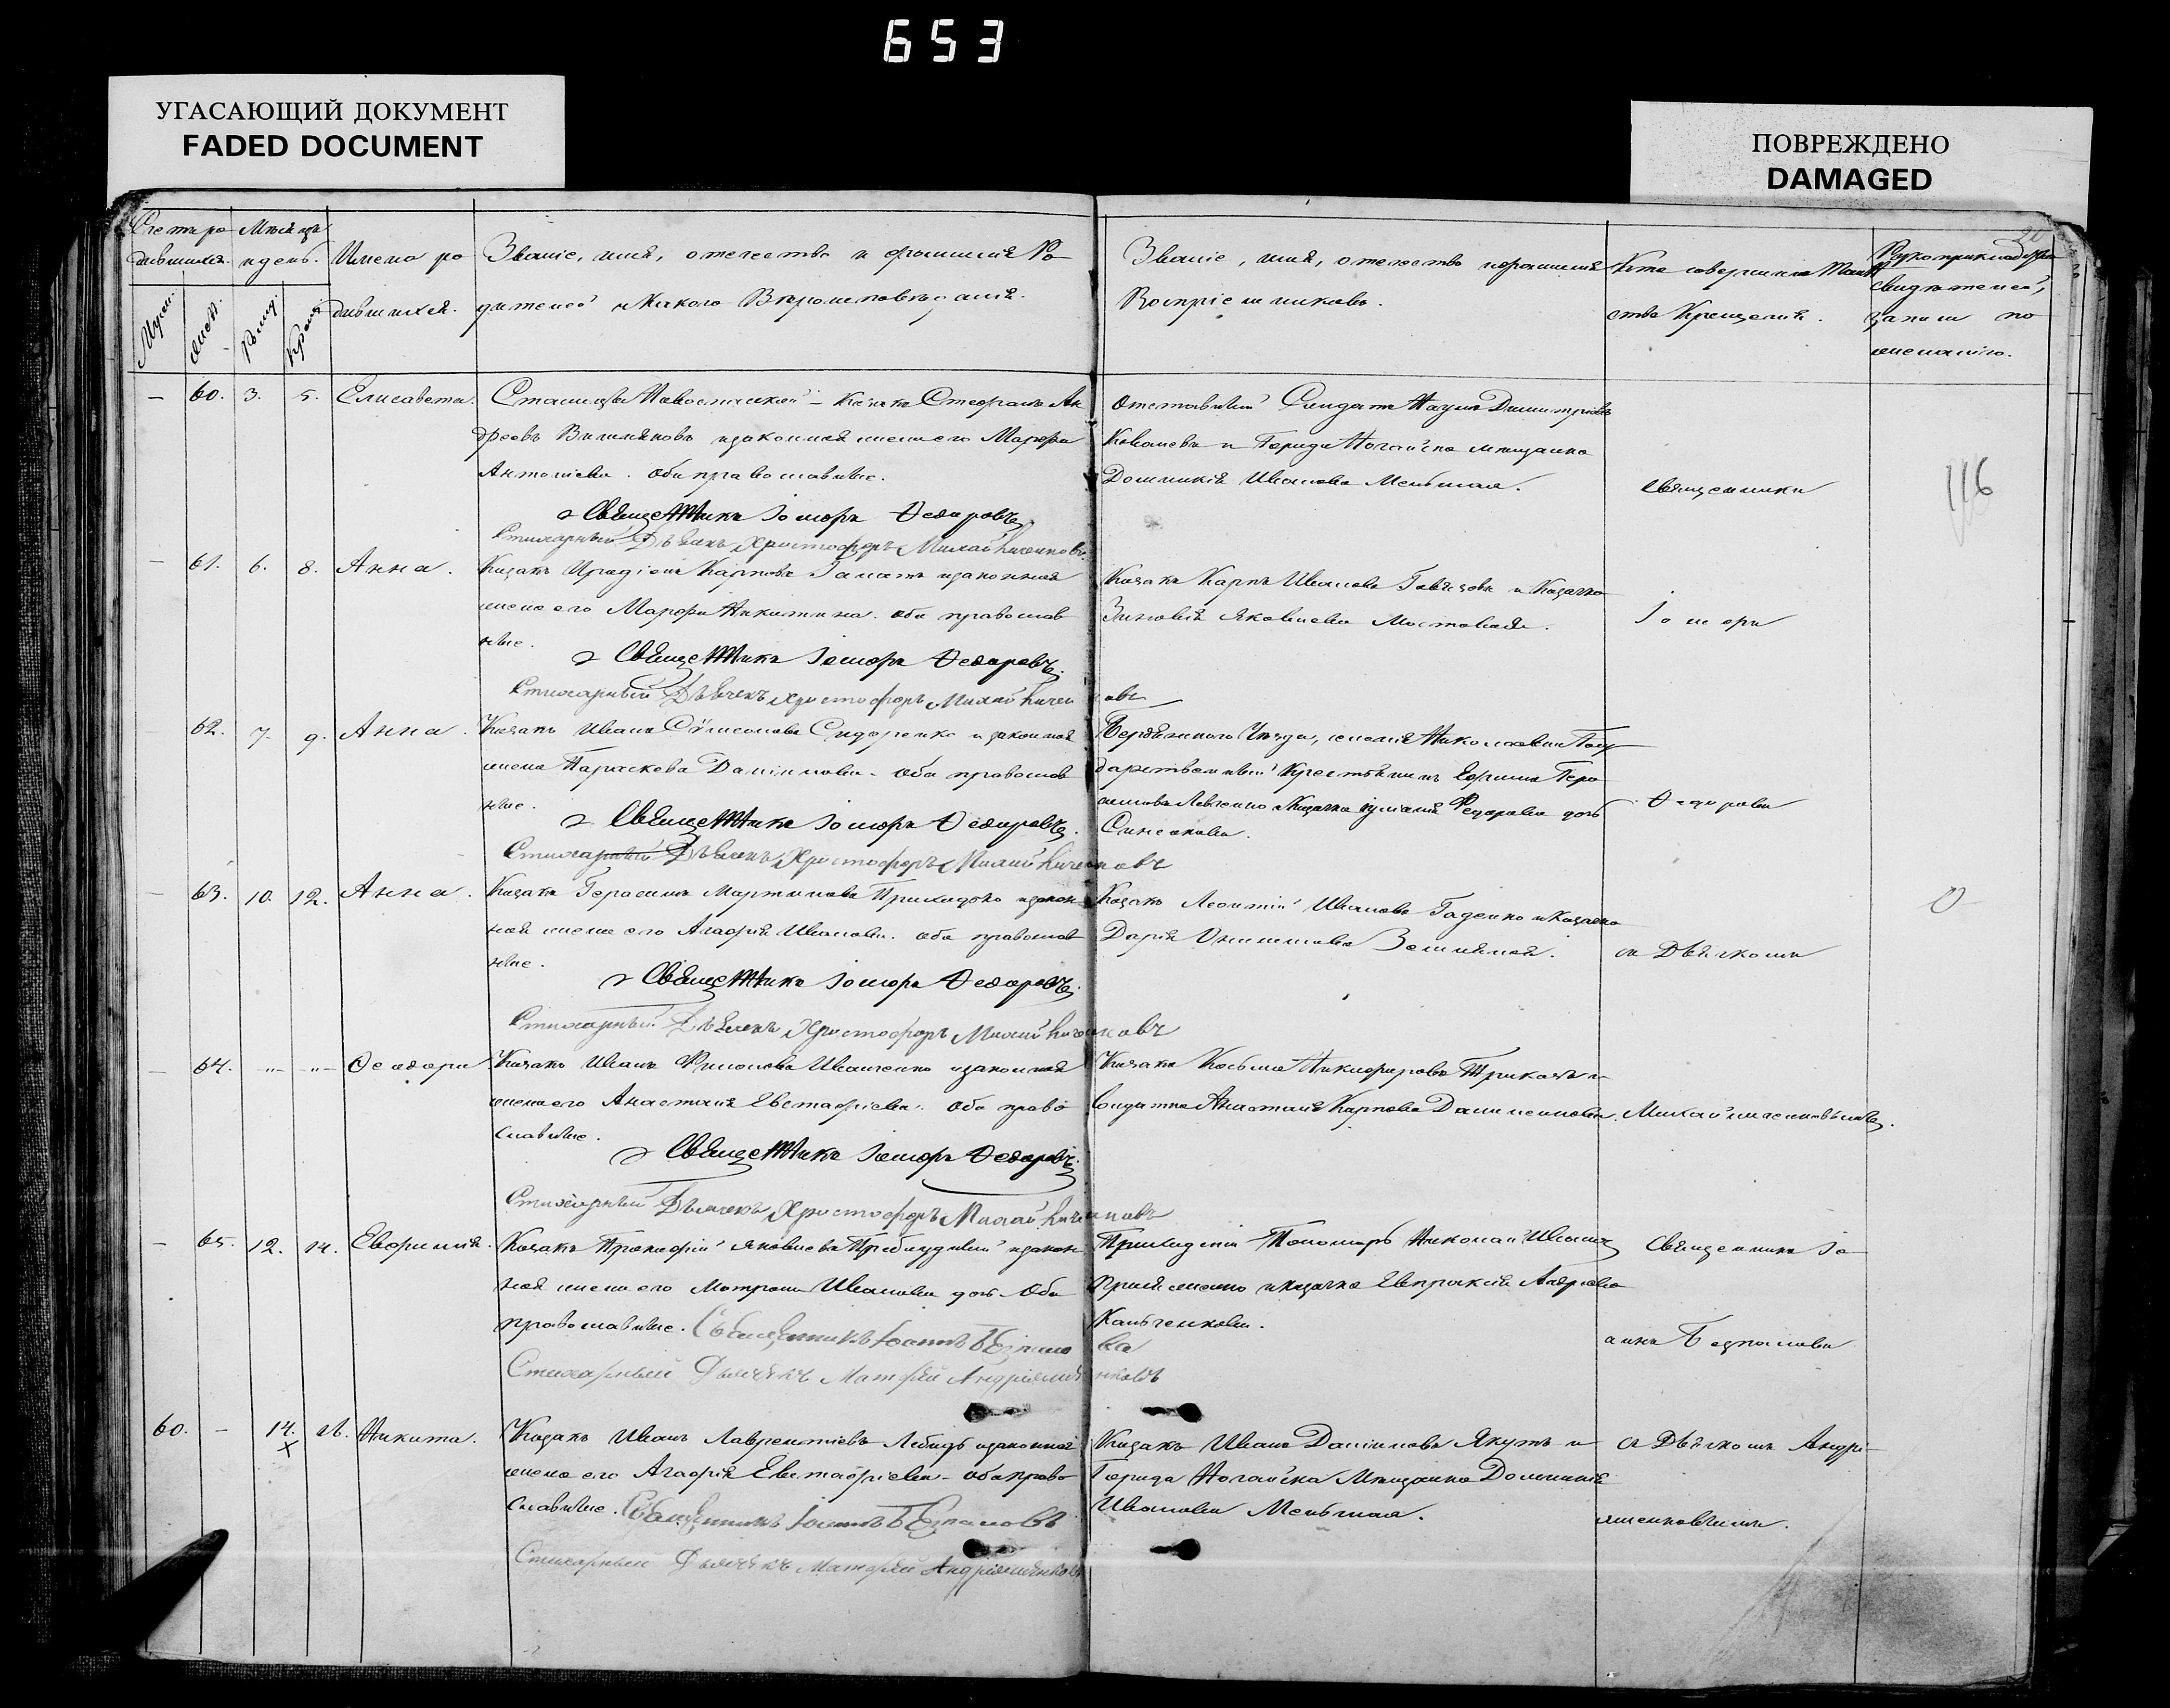 653
УГАСАЮЩИЙ ДОКУМЕНТ
FADED DOCUMENT
ПОВРЕЖДЕНО
DAMAGED
Счетъ ро
дившихся.
Мѣсяцъ
и день.
Имена ро
дившихся.
Званіе, имя, отечество и фамилія Ро
дителей и какого Вѣроисповѣданія.
Званіе, имя, отечество и фамилія
Воспріемниковъ.
Кто совершилъ Таин
ство Крещенія.
Рукоприкладства
свидѣтелей,
записи по
желанію.
Муж.
Жен.
Рожд.
Крещ.
— 60. 3. 5. Елисавета.
Станицы Новоспаской - козакъ Стефанъ Ан
дреевъ и законная жена его Марфа
Антоніева. Оба православные.
Священникъ Іосифъ Ѳедоровъ
Стихарный Дьячекъ Христофоръ Михайличенковъ
Отставный Солдатъ Наумъ Димитріевъ
Ковалевъ и Города Ногайска мѣщанка
Домникія Иванова Меньшая.
Священникъ
116
— 61. 6. 8. Анна.
Козакъ Иродіонъ Карповъ и законная
жена его Марфа Никитина. оба православ
ные.
Священникъ Іосифъ Ѳедоровъ
Стихарный Дьячекъ Христофоръ Михайличенковъ
Козакъ Карпъ Ивановъ и Козачка
Зиновія Яковлева Мостовая.
Іосифъ
62. 7. 9. Анна.
Козакъ Иванъ Сѵмеоновъ Сидоренко и законная
жена Параскева Даніилова. оба православ
ные.
Священникъ Іосифъ Ѳедоровъ
Стихарный Дьячекъ Христофоръ Михайличенковъ
Бердянского Уѣзда, селенія Николаевки Госу
дарственный Крестьянинъ Ефимъ Гера
симовъ Левченко и Козачка Іуліанія Федорова дочь
Симонова.
Ѳедоровъ
— 63. 10. 12. Анна.
Козакъ Герасимъ Мартиновъ Приходько и закон
ная жена его Агафія Иванова. оба православ
ные.
Священникъ Іосифъ Ѳедоровъ
Стихарный Дьячекъ Христофоръ Михайличенковъ
Козакъ Леонтій Ивановъ Гаденко и Козачка
Дарія Земляная.
съ Дьячкомъ
— 64. -"- -"- Ѳеодора
Козакъ Иванъ Филоновъ Иванченко и законная
жена его Анастасія Евстафіева. Оба право
славные.
Священникъ Іосифъ Ѳедоровъ
Стихарный Дьячекъ Христофоръ Михайличенковъ
Козакъ Косьма Никифоровъ Трикозъ и
солдатка Анастасія Карпова Данилейкова.
Михайличенковымъ.
— 65. 12. 14. Евфимія.
Козакъ Прокофій Яковлевъ Приблудный и закон
ная жена его Матрона Иванова дочь. Оба
православные. Священникъ Іоаннъ Безпалова
Стихарный Дьячекъ Матфей Андріяшенковъ
Пономарь Николай Ивановъ
и козачка Евпраксія Андреева
Кальченкова.
Священникъ Іо
аннъ Безпаловъ
60. — 14. 16. Никита.
х
Козакъ Иванъ Лаврентіевъ Лебидь и законная
жена его Агафія Евстафіева - оба право
славные. Священникъ Іоаннъ Безпаловъ
Стихарный Дьячекъ Матфей Андріяшенковъ
Козакъ Иванъ Даніиловъ Якутъ и
Города Ногайска Мѣщанка Домникія
Иванова Меньшая.
съ Дьячкомъ Андрі
яшенковымъ.